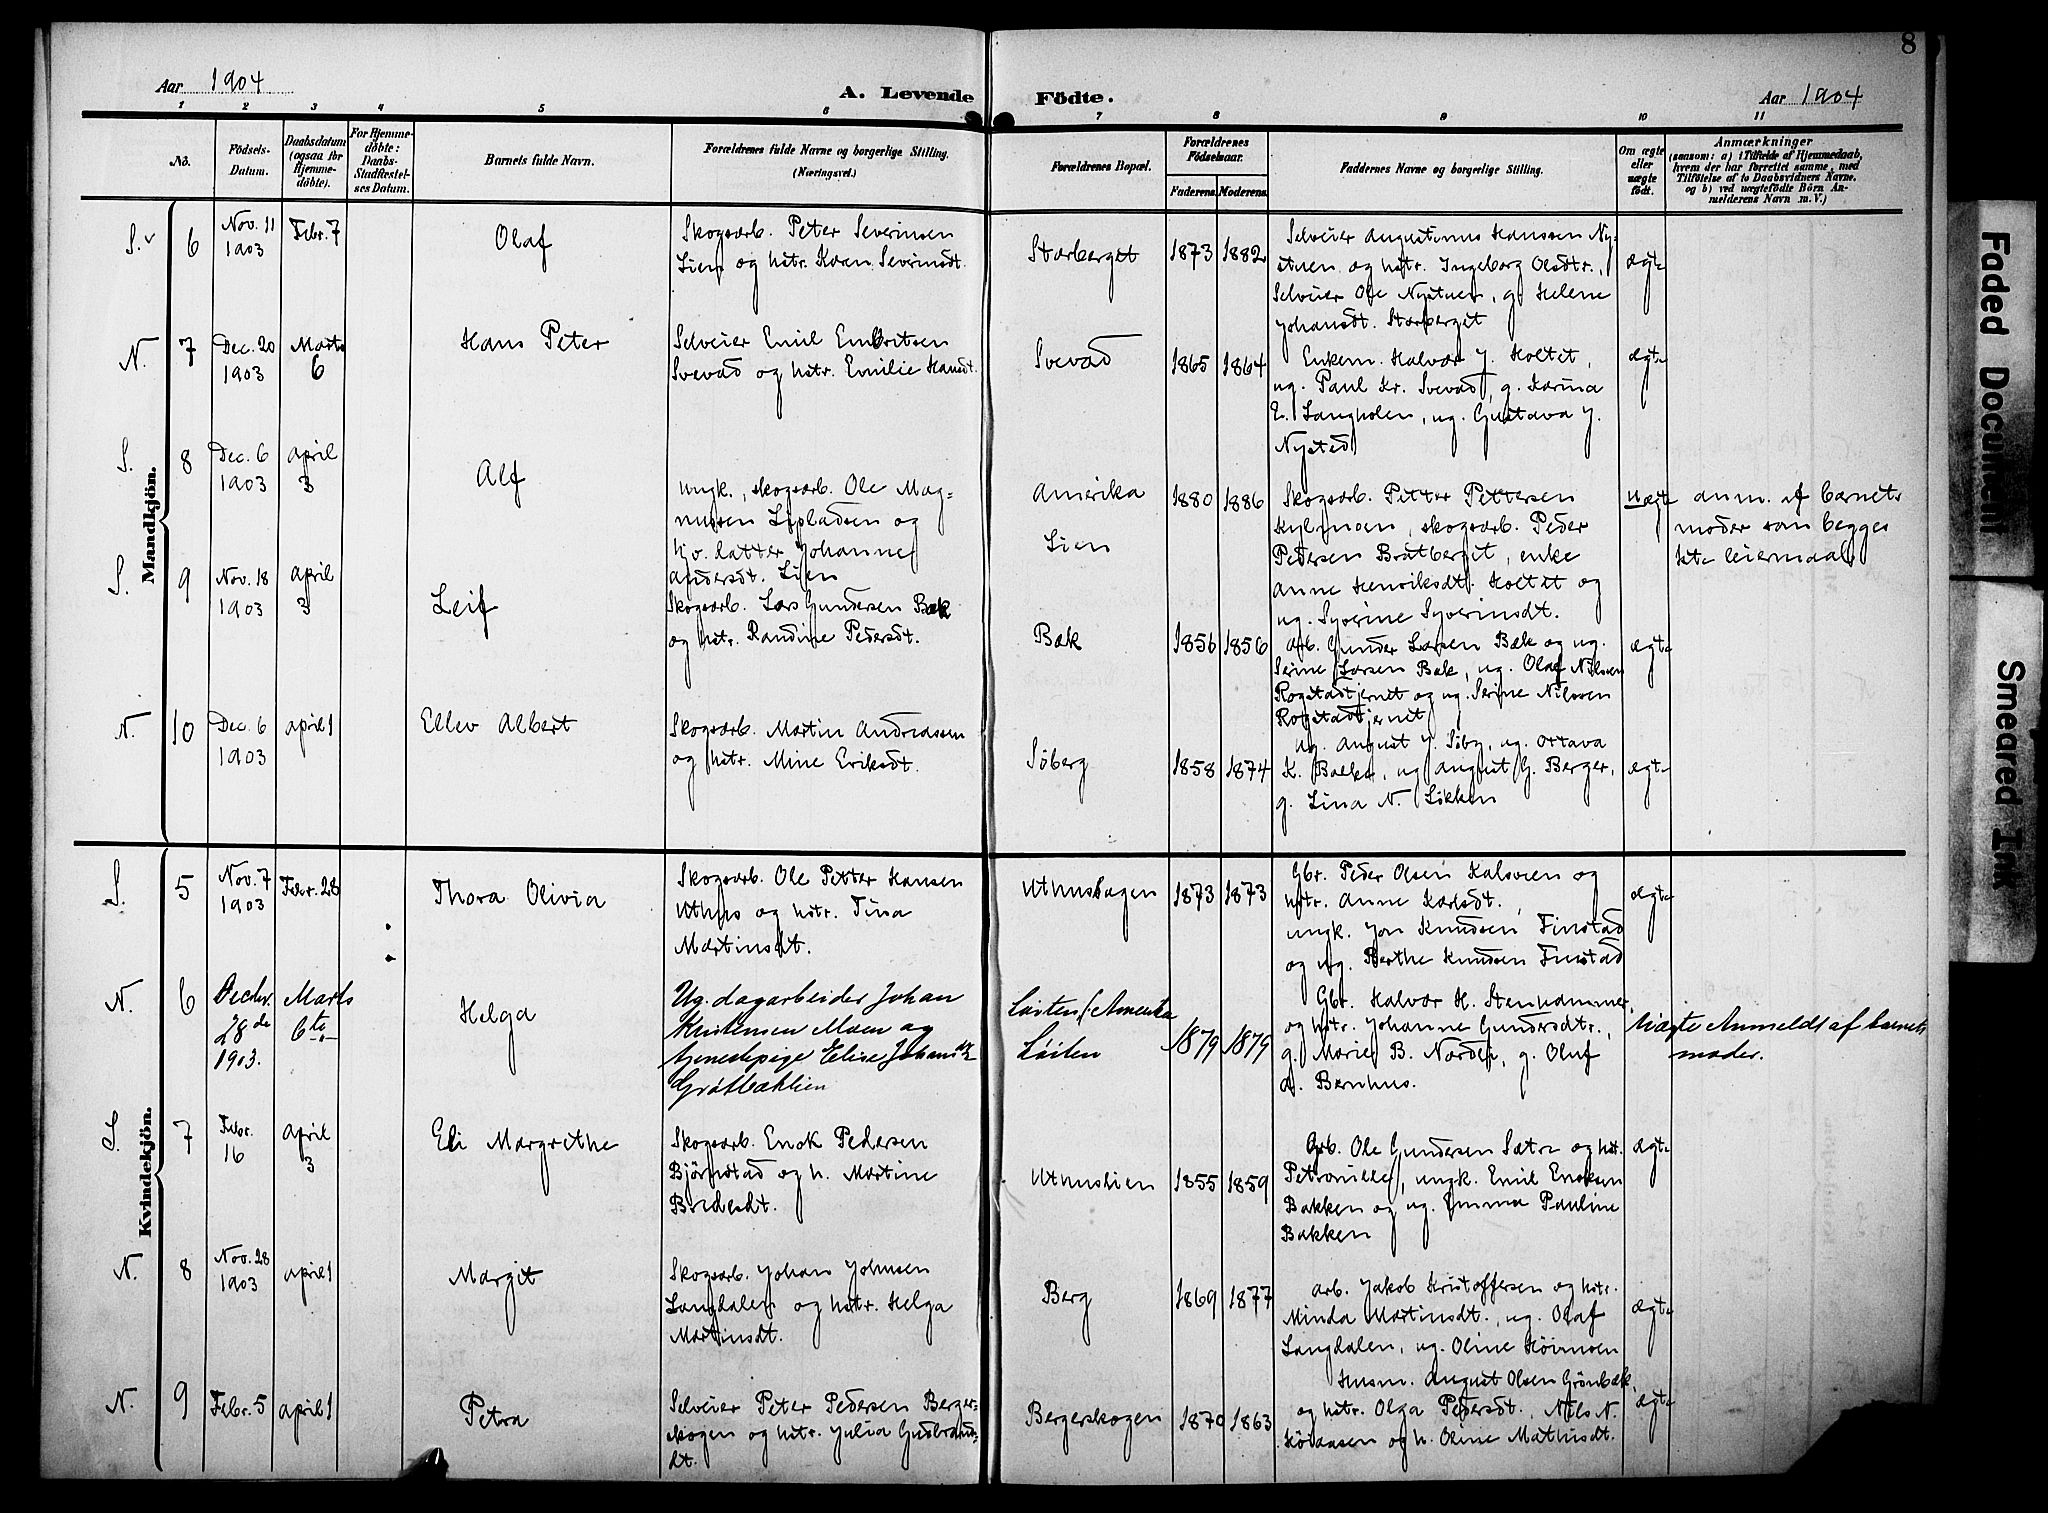 8
Aar 1904
A. Levende Födte.
Aar 1904
1 2 3 4 5 6 7 8 9 10 11
No.
Födsels-Datum.
Daabsdatum (ogsaa for Hjemme-døbte).
For Hjemme-døbte: Daabs-Stadfæstel-ses Datum.
Barnets fulde Navn.
Forældrenes fulde Navne og borgerlige Stilling.
(Næringsvei.)
Forældrenes Bopæl.
Forældrenes Födselsaar.
Faderens. Moderens.
Faddernes Navne og borgerlige Stilling.
Om ægte eller uægte födt.
Anmærkninger
(saasom: a) i Tilfælde af Hjemmedaab,
hvem der har forrettet samme, med
Tilföielse af to Daabsvidners Navne,
og b) ved uægtefödte Börn An-
melderens Navn m. V.)
Mandkjön.
S. 6 Nov. 11 1903 Febr. 7 Olaf
Skogsarb. Peter Severinsen
Lien og hstr. Karen Severinsdt.
Storberget 1873 1882
Selveier Augustinus Hanssen Ny-
stuen og hstr. Ingeborg Olsdtr.,
Selveier Ole Nystuen, g. Helene
Johansdt. Storberget
ægte
N. 7 Dec. 20 1903 Marts 6 Hans Peter
Selveier Emil Embritsen
Svevad og hstr. Emilie Hansdt.
Svevad 1865 1864
Enkem. Halvor J. Holtet,
ug. Paul Kr. Svevad, g. Karina
E. Langholen, ug. Gustava J.
Nysted
ægte
S. 8 Dec. 6 1903 April 3 Alf
Ungk., skogsarb. Ole Mag-
nussen Lipladsen og
hjv. datter Johanne
Andersdt. Lien
Amerika
Lien
1880 1886
Skogsarb. Petter Pettersen
Kylmoen, skogsarb. Peder
Pedersen Bratberget, enke
Anne Henriksdt. Holtet og
ug. Syverine Syverinsdt.
uægte
Anm. af barnets
moder som begges
1ste leiermaal
S. 9 Nov. 18 1903 April 3 Leif
Skogsarb. Lars Gundersen Bæk
og hstr. Randine Pedersdt.
Bæk 1856 1856
Arb. Gunder Larsen Bæk og ug.
Serine Larsen Bæk, ug. Olaf Nilsven
Rogstadtjernet og ug. Serine Nilsven
Rogstadtjernet
ægte
N. 10 Dec. 6 1903 April 1 Ellev Albert
Skogsarb. Martin Andreassen
og hstr. Mine Eriksdt.
Söberg 1858 1874
Ug. August J. Söby, ug. Ottava
K. Bakke, ug August G. Berger,
g. Lina N. Løkken
ægte
Kvindekjön.
S. 5 Nov. 7 1903 Febr. 28 Thora Olivia
Skogsarb. Ole Petter Hansen
Uthus og hstr. Tina
Martinsdt.
Uthushagen 1873 1873
Gbr. Peder Olsen Kalsveen og
hstr. Anne Karlsdt.,
ungk. Jon Knudsen Finstad
og ug. Berthe Knudsen Finstad
ægte
N. 6 Decbr. 28de 1903. Marts 6te Helga
Ug. dagarbeider Johan
Kristensen Moen og
tjenestepige Elise Johansdt.
Gråtbæklien
Løiten /: Amerika
Løiten
1879 1879
Gbr. Halvor H. Stenhammer
og hstr. Johanne Gundersdtr.,
g. Marie B. Norden, g. Oluf
A. Bernhus.
Uægte Anmeldt af barnets
moder.
S. 7 Febr. 16 April 3 Eli Margrethe
Skogsarb. Enok Pedersen
Björnstad og h. Martine
Bredesdt.
Uthuslien 1855 1859
Arb. Ole Gundersen Sætre og hstr.
Petronille, ungk. Emil Enoksen
Bakken og ug. Emma Pauline
Bakken
ægte
N. 8 Nov. 28 1903 April 1 Margit
Skogsarb. Johan Johnsen
Langdalen og hstr. Helga
Martinsdt.
Berg 1869 1877
Arb. Jakob Kristoffersen og hstr.
Minda Martinsdt., ug. Olaf
Langdalen, ug. Oline Höivmoen
ægte
N. 9 Febr. 5 April 1 Petra
Selveier Peter Pedersen Berger-
skogen og hstr. Julia Gudbrands-
dt.
Bergerskogen 1870 1863
Husm. August Olsen Grönbæk,
og hstr. Olga Pedersdt., Nils N.
og h. Oline Mathisdt.
ægte
Faded Document
Smeared Ink